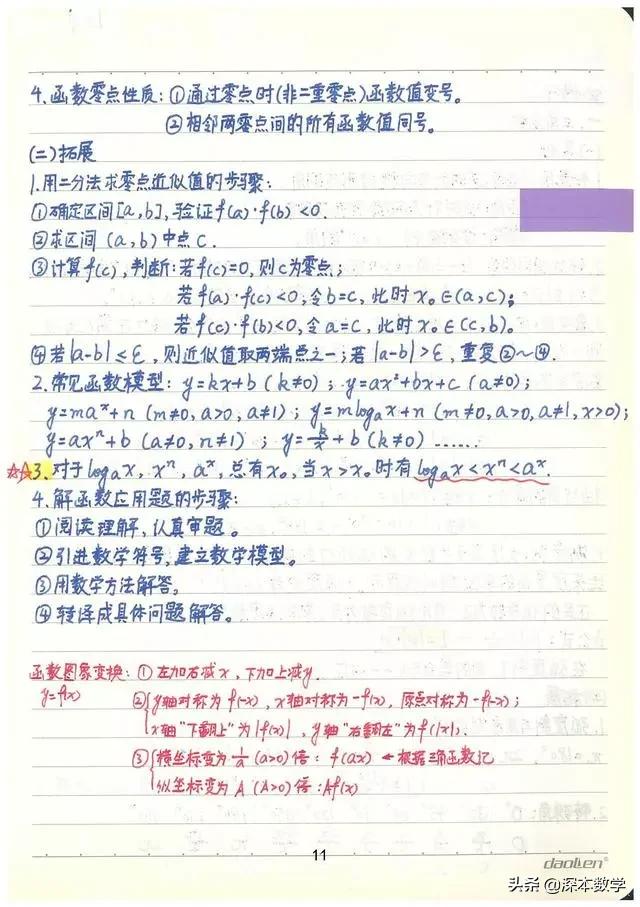 4.函数零点性质：①通过零点时(非二重零点)函数值变号。
②相邻两零点间的所有函数值同号。
(二)拓展
1.用二分法求零点近似值的步骤：
①确定区间[a,b],验证f(a)·f(b)<0.
②求区间(a,b)中点c.
③计算f(c),判断:若f(c)=0,则c为零点;
若f(a)·f(c)<0,令b=c,此时x₀∈(a,c);
若f(c)·f(b)<0,令a=c,此时x₀∈(c,b).
④若|a-b|≤ε,则近似值取两端点之一;若|a-b|>ε,重复②~④.
2.常见函数模型:y=kx+b(k≠0);y=ax²+bx+c(a≠0);
y=maˣ+n(m≠0,a>0,a≠1);y=mlogₐx+n(m≠0,a>0,a≠1,x>0);
y=axⁿ+b(a≠0,n≠1);y=k/x+b(k≠0)……
☆☆3.对于logₐx,xⁿ,aˣ,总有x₀,当x>x₀时有logₐx<xⁿ<aˣ.
4.解函数应用题的步骤:
①阅读理解,认真审题。
②引进数学符号,建立数学模型。
③用数学方法解答。
④转译成具体问题解答。
函数图象变换:①左加右减x,下加上减y.
y=f(x)
②{y轴对称为f(-x),x轴对称为-f(x),原点对称为-f(-x);
x轴"下翻上"为|f(x)|,y轴"右翻左"为f(|x|).
③{横坐标变为1/a(a>0)倍:f(ax) ←根据三角函数记
纵坐标变为A(A>0)倍:Af(x)
11
daolen
头条@深本数学